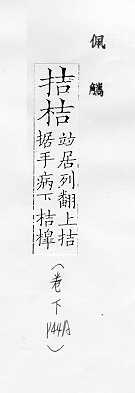 佩觿
拮桔
竝居列翻上拮
据手病下桔槹
(卷下144A)